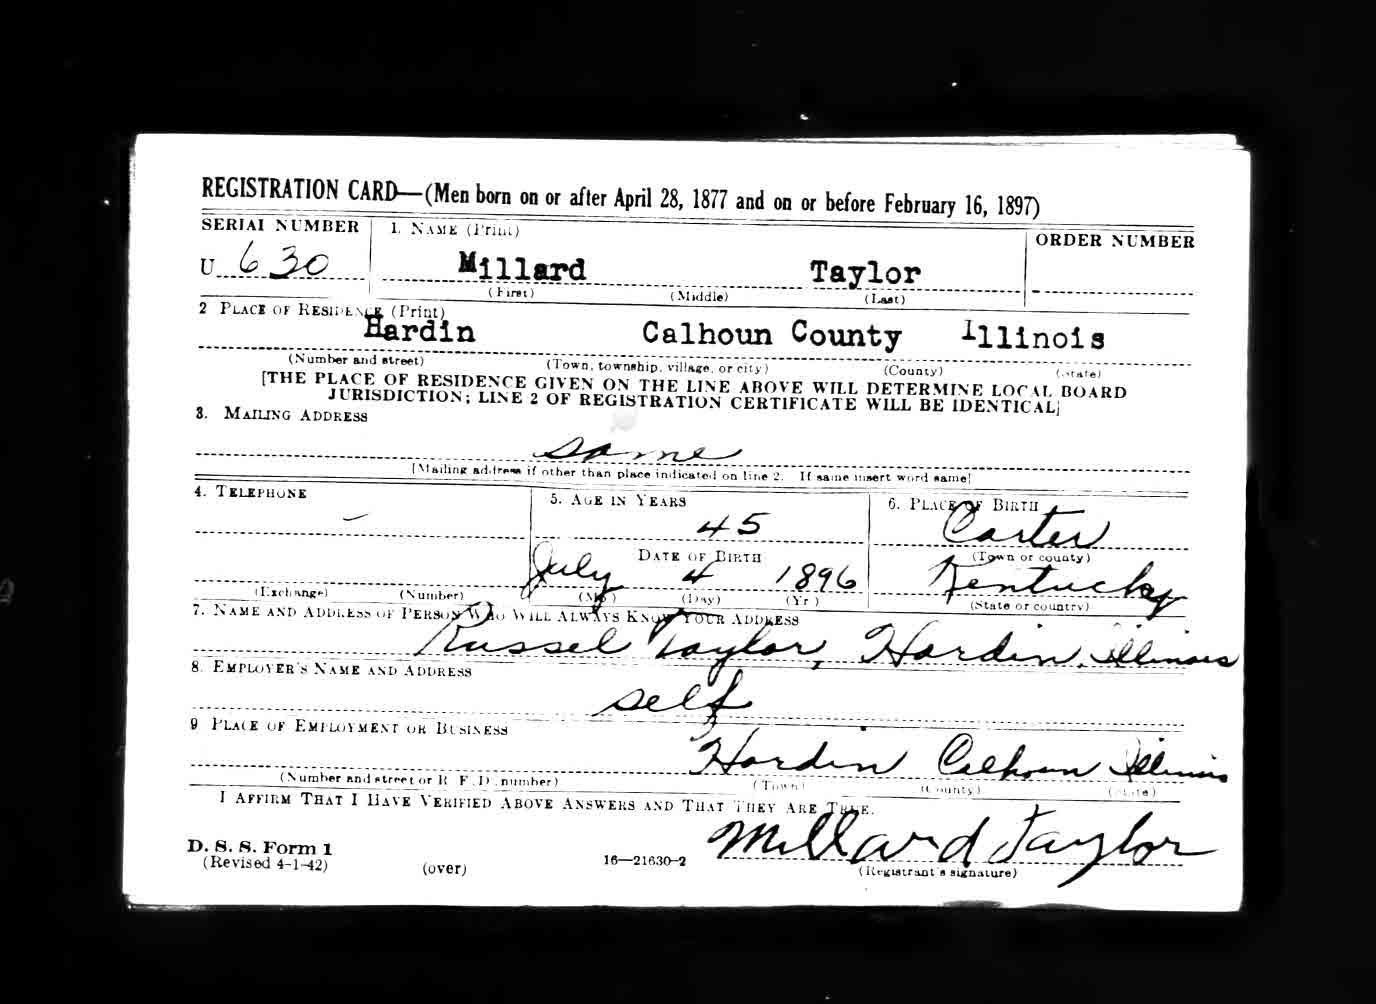 REGISTRATION CARD—(Men born on or after April 28, 1877 and on or before February 16, 1897)
SERIAL NUMBER
1. NAME (Print)
ORDER NUMBER
U 630
Millard Taylor
(First) (Middle) (Last)
2 PLACE OF RESIDENCE (Print)
Hardin Calhoun County Illinois
(Number and street) (Town, township, village, or city) (County) (State)
[THE PLACE OF RESIDENCE GIVEN ON THE LINE ABOVE WILL DETERMINE LOCAL BOARD
JURISDICTION; LINE 2 OF REGISTRATION CERTIFICATE WILL BE IDENTICAL]
3. MAILING ADDRESS
same
[Mailing address if other than place indicated on line 2. If same insert word same]
4. TELEPHONE
5. AGE IN YEARS
6. PLACE OF BIRTH
–
45
Carter
DATE OF BIRTH
(Town or county)
July 4 1896
Kentucky
(Exchange) (Number)
(Mo.) (Day) (Yr.)
(State or country)
7. NAME AND ADDRESS OF PERSON WHO WILL ALWAYS KNOW YOUR ADDRESS
Russel Taylor, Hardin, Illinois
8. EMPLOYER'S NAME AND ADDRESS
self
9 PLACE OF EMPLOYMENT OR BUSINESS
Hardin Calhoun Illinois
(Number and street or R. F. D. number) (Town) (County) (State)
I AFFIRM THAT I HAVE VERIFIED ABOVE ANSWERS AND THAT THEY ARE TRUE.
Millard Taylor
D. S. S. Form 1
(Revised 4-1-42)
(over)
16—21630-2
(Registrant's signature)